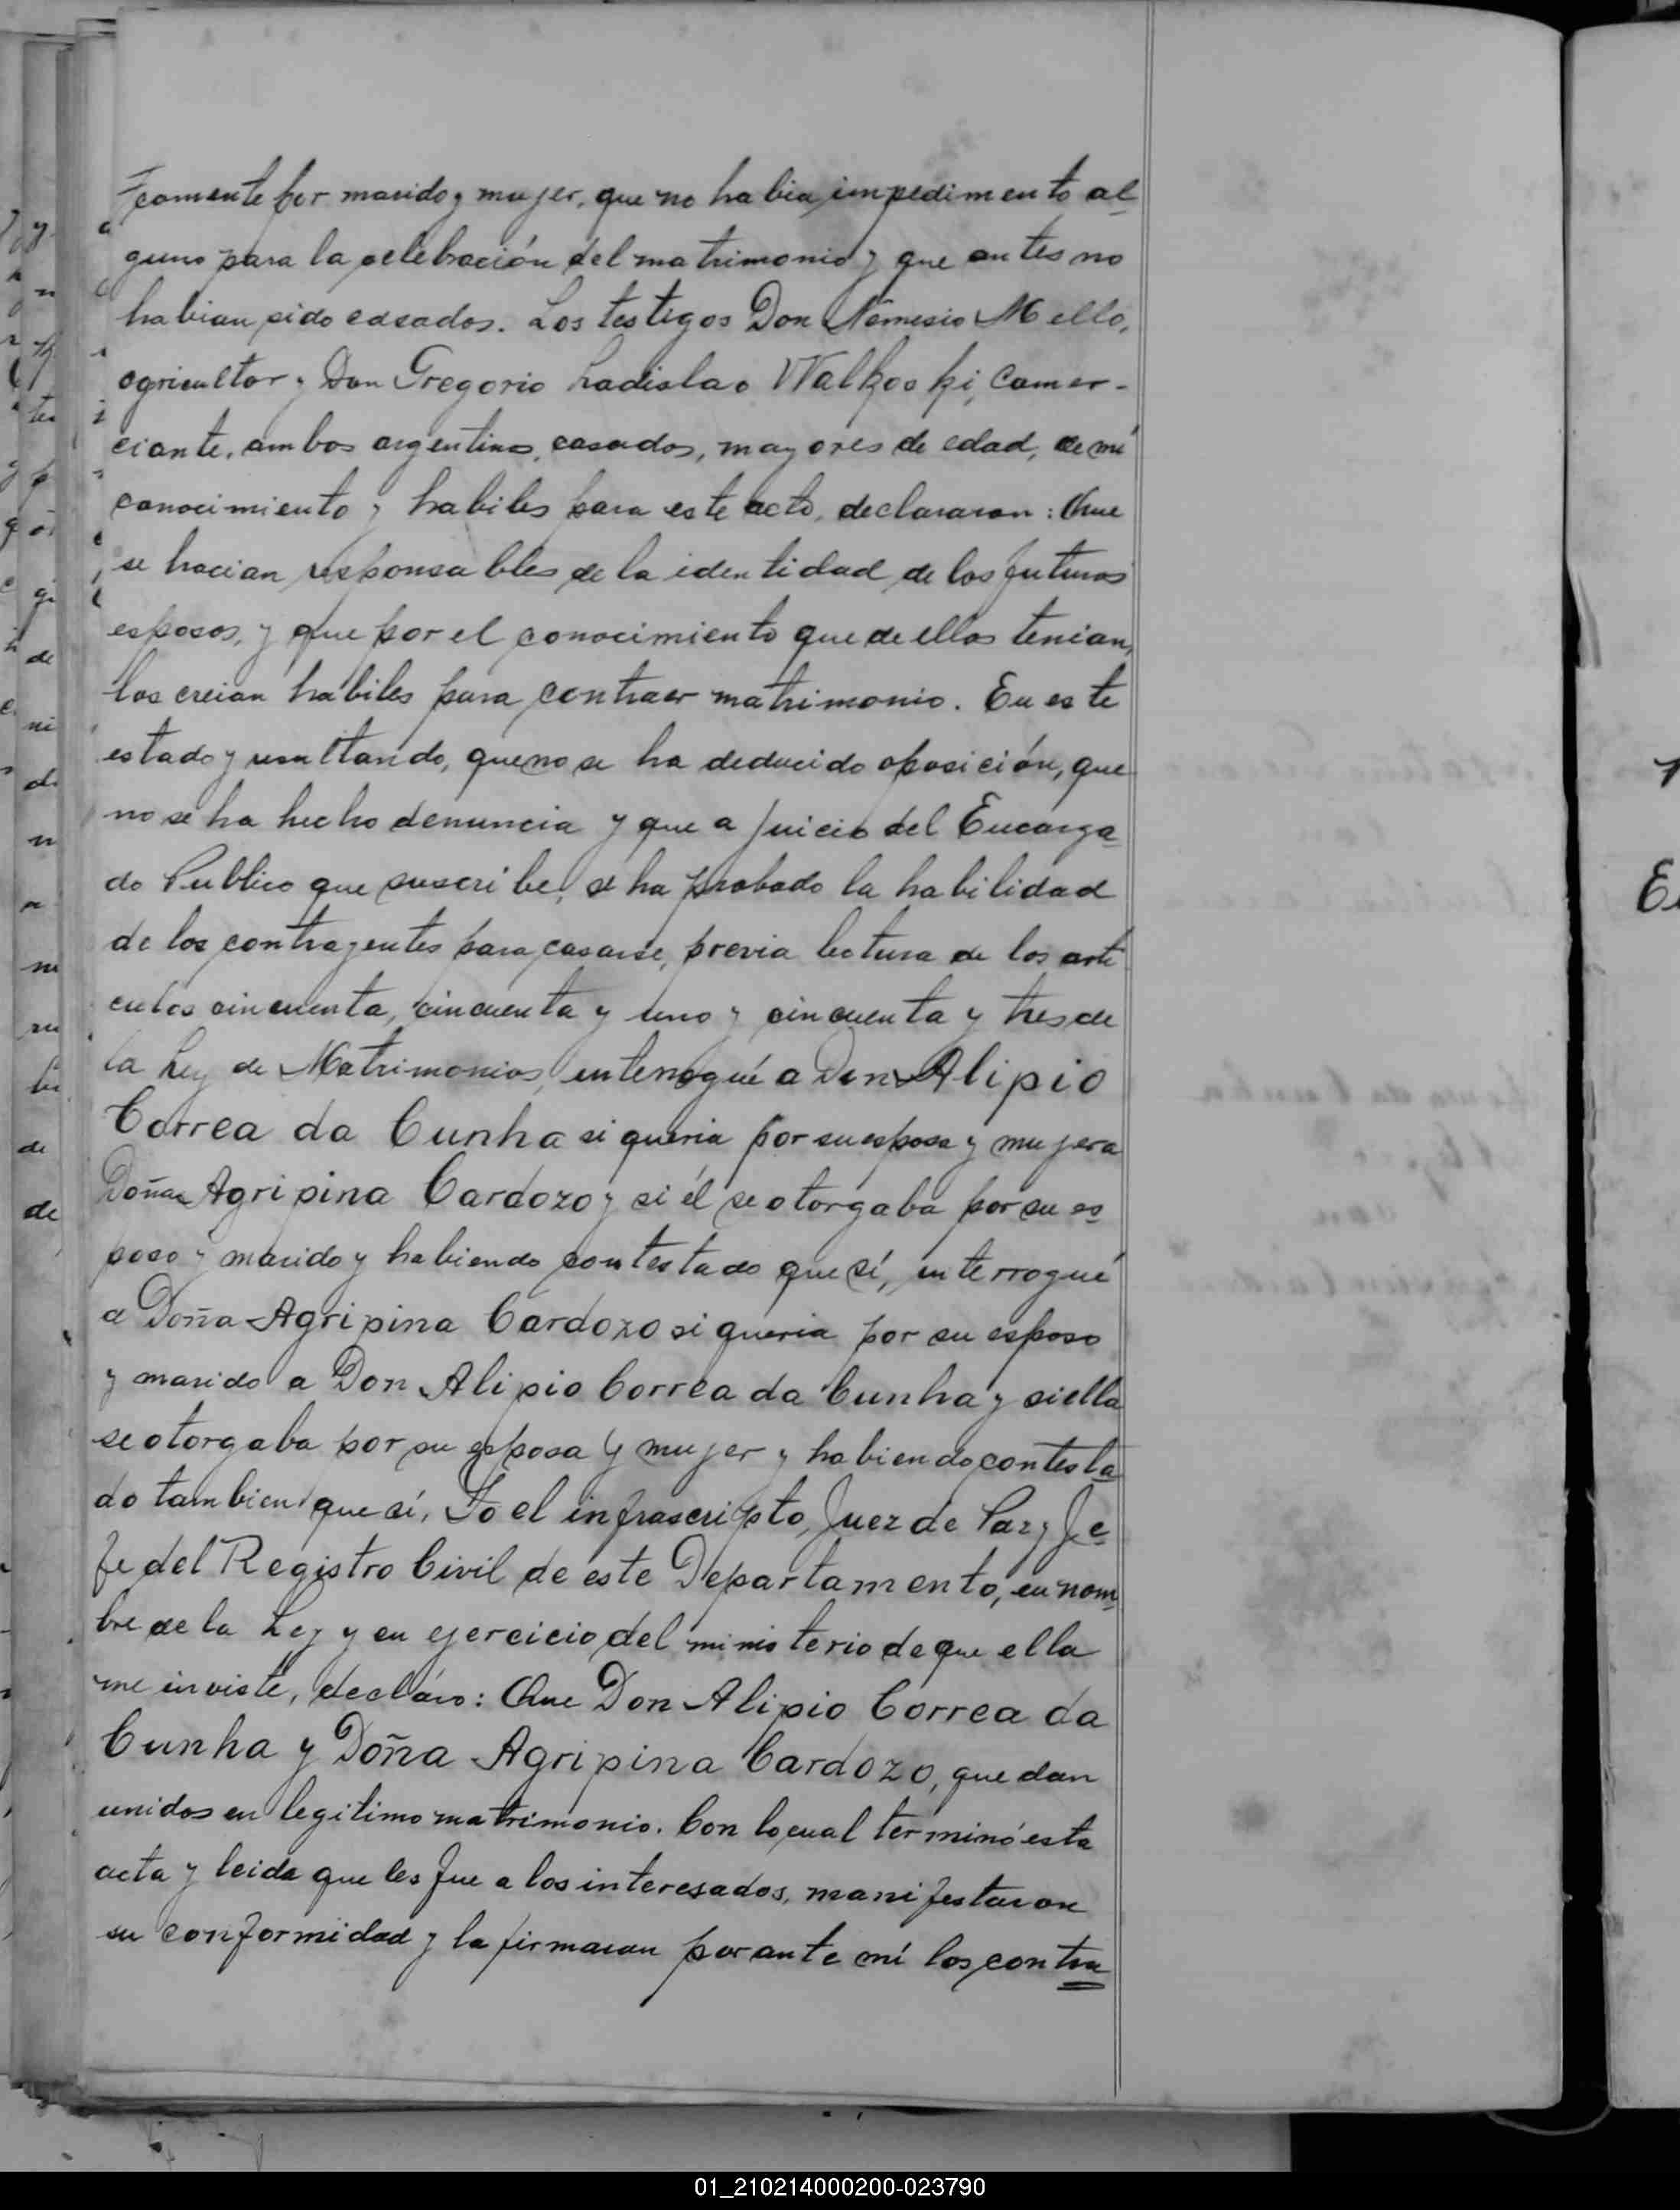 camente por marido y mujer, que no habia impedimento al
guno para la celebración del matrimonio y que antes no
habian sido casados. Los testigos Don Nemesio Mello,
agricultor y Don Gregorio Ladislao Walkooki, Comer-
ciante, ambos argentinos, casados, mayores de edad, de mi
conocimiento y habiles para este acto, declararon: Que
se hacian responsables de la identidad de los futuros
esposos, y que por el conocimiento que de ellos tenian,
los creian habiles para contraer matrimonio. En este
estado y resultando, que no se ha deducido oposición, que
no se ha hecho denuncia y que a juicio del Encarga
do Publico que suscribe, se ha probado la habilidad
de los contrayentes para casarse, previa lectura de los arti
culos cincuenta, cincuenta y uno y cincuenta y tres de
la Ley de Matrimonios, interrogué a Don Alipio
Correa da Cunha si queria por su esposa y mujer a
Doña Agripina Cardozo y si él se otorgaba por su es
poso y marido y habiendo contestado que sí, interrogué
a Doña Agripina Cardozo si queria por su esposo
y marido a Don Alipio Correa da Cunha y si ella
se otorgaba por su esposa y mujer y habiendo contesta
do tambien que sí, Yo el infrascripto, Juez de Paz y Je
fe del Registro Civil de este Departamento, en nom
bre de la Ley y en ejercicio del ministerio de que ella
me inviste, declaro: Que Don Alipio Correa da
Cunha y Doña Agripina Cardozo, quedan
unidos en legitimo matrimonio. Con lo cual terminó esta
acta y leida que les fue a los interesados, manifestaron
su conformidad y la firmaron por ante mí los contra
01_210214000200-023790